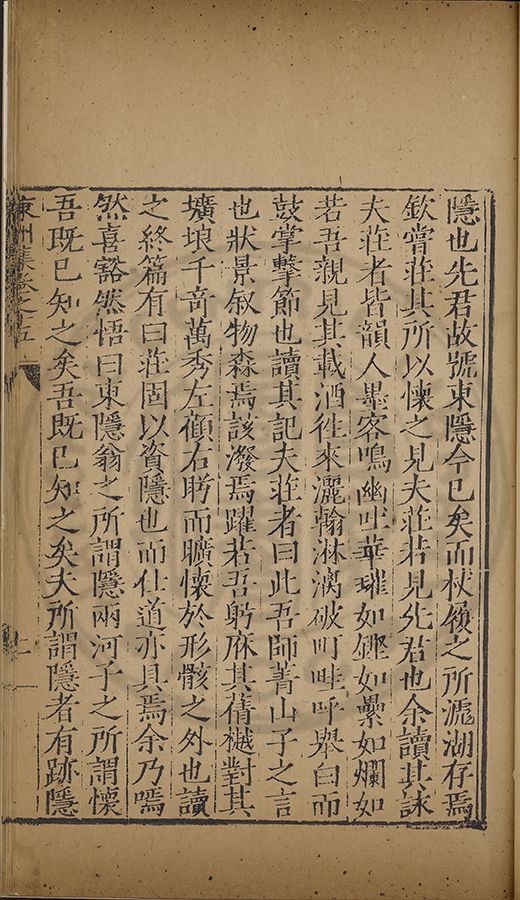 隱也先君故號東隱今已矣而杖履之所漉湖存焉
欽嘗莊其所以懷之見夫莊若見先君也余讀其詠
夫莊者皆韻人墨客鳴幽吐華璀如鏗如纍如爛如
若吾親見其載酒徃來灑翰淋漓破町畦呼舉白而
鼓掌擊節也讀其記夫莊者曰此吾師菁山子之言
也狀景叙物森焉該潑焉躍若吾躬庥其蒨樾對其
壙埌千竒萬秀左顧右眄而曠懷於形骸之外也讀
之終篇有曰莊固以資隱也而仕道亦具焉余乃嘕
然喜豁然悟曰東隱翁之所謂隱兩河子之所謂懷
吾既已知之矣吾既已知之矣夫所謂隱者有跡隱
東洲集卷之五